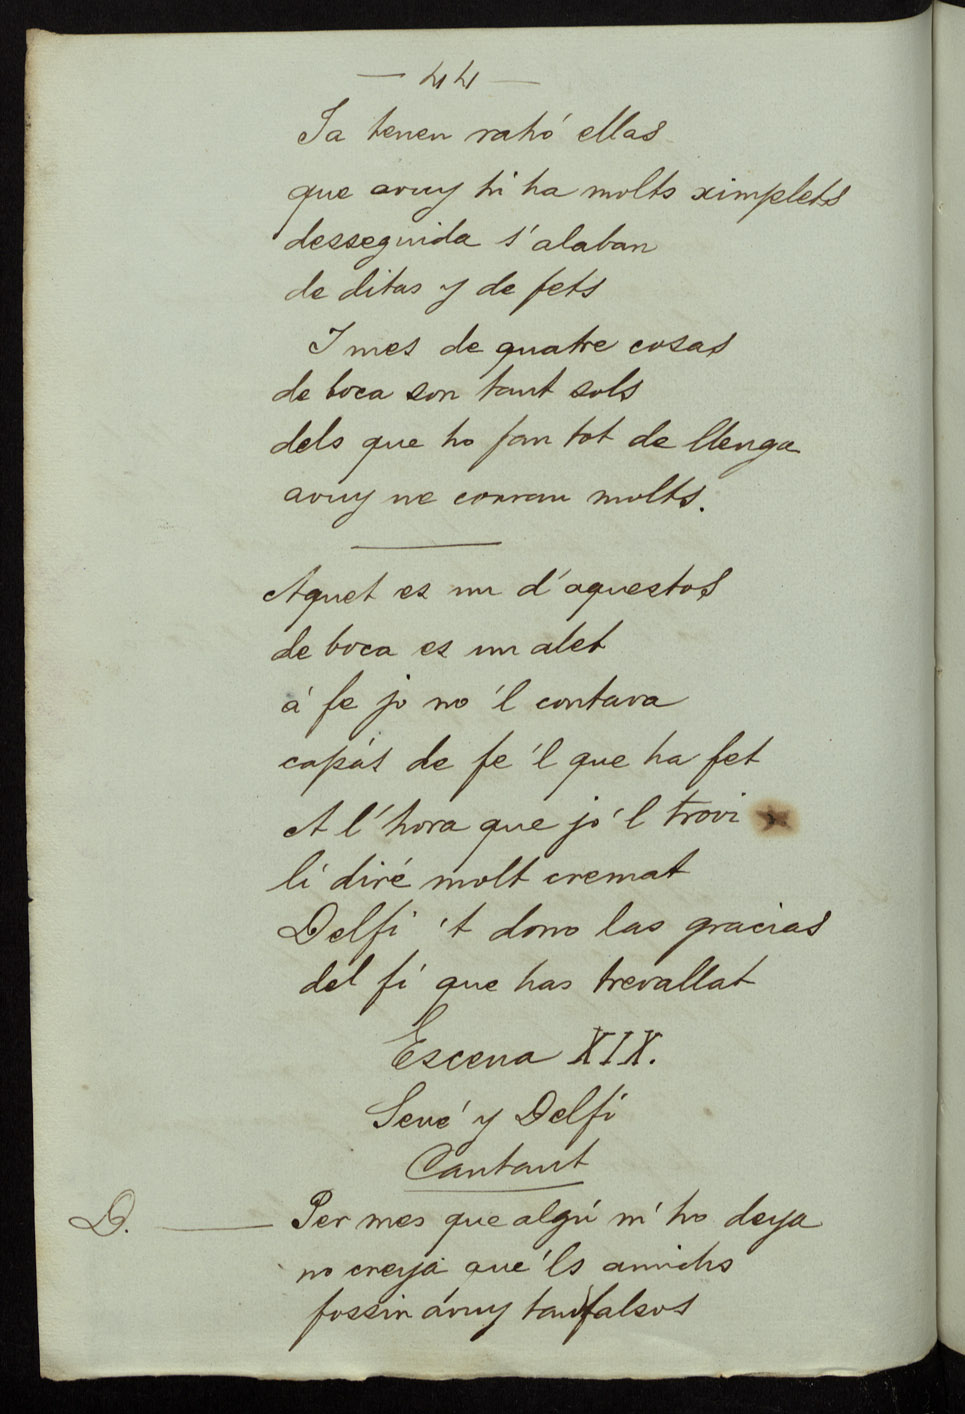 — 44 —
Ja tenen rahó ellas
que avuy hi ha molts ximplets
desseguida s'alaban
de ditas y de fets
I mes de quatre cosas
de boca son tant sols
dels que ho fan tot de llenga
avuy ne corran molts.
Aquet es un d'aquestos
de boca es un alet
á fe jo no 'l contava
capás de fe 'l que ha fet
A l'hora que jo 'l trovi
li diré molt cremat
Delfi 't dono las gracias
del fi que has trevallat
Escena XIX.
Sevé y Delfi
Cantant
D. — Per mes que algú m' ho deya
no creya que 'ls amichs
fossin ávuy tan falsos